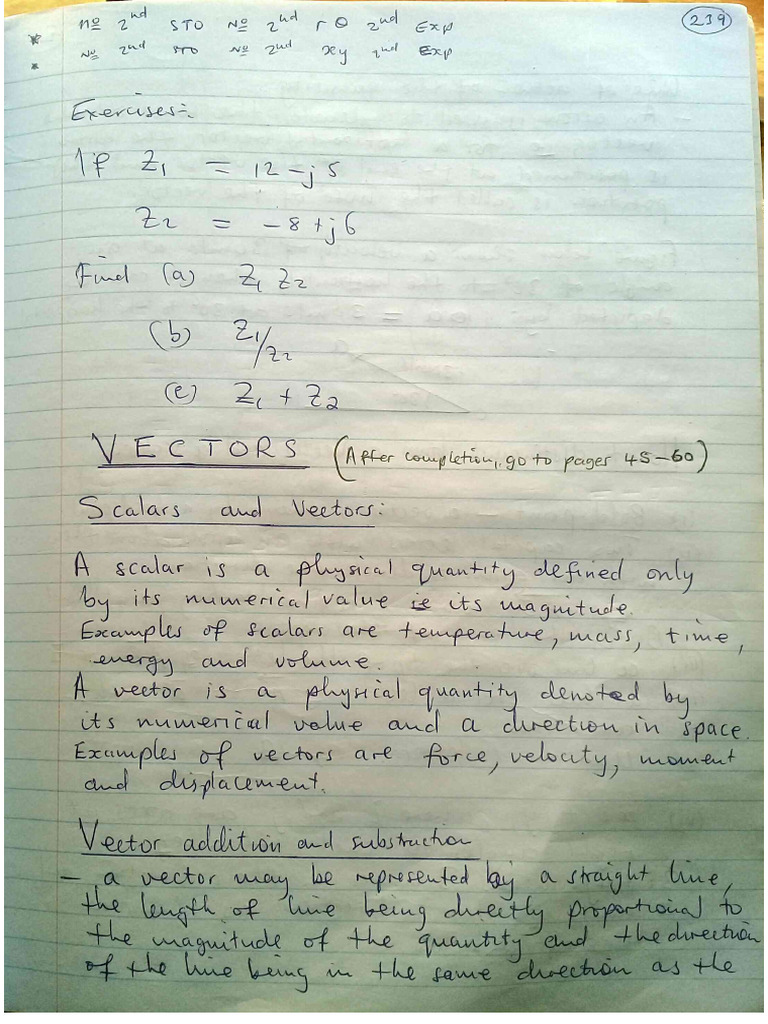 239
* No 2nd STO No 2nd r θ 2nd Exp
* No 2nd STO No 2nd xy 2nd Exp
Exercises:-
1 If Z1 = 12 - j5
Z2 = -8 + j6
Find (a) Z1 Z2
(b) Z1/Z2
(c) Z1 + Z2
VECTORS (After completion, go to pages 45-60)
Scalars and Vectors:
A scalar is a physical quantity defined only
by its numerical value ie its magnitude.
Examples of scalars are temperature, mass, time,
energy and volume.
A vector is a physical quantity denoted by
its numerical value and a direction in space.
Examples of vectors are force, velocity, moment
and displacement.
Vector addition and substraction
- a vector may be represented by a straight line,
the length of line being directly proportional to
the magnitude of the quantity and the direction
of the line being in the same direction as the